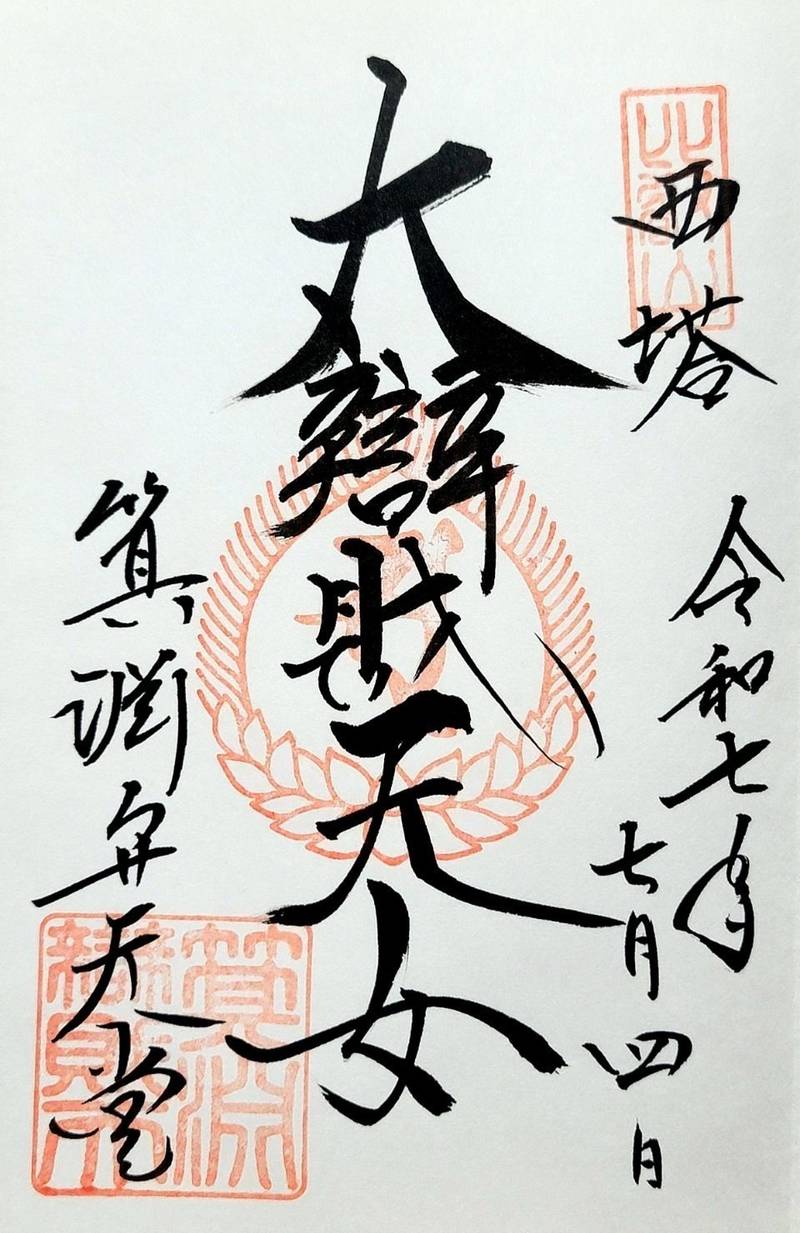 比叡山
西塔
令和七年
七月四日
大辯財天女
箕淵弁天堂
箕淵
辯財天